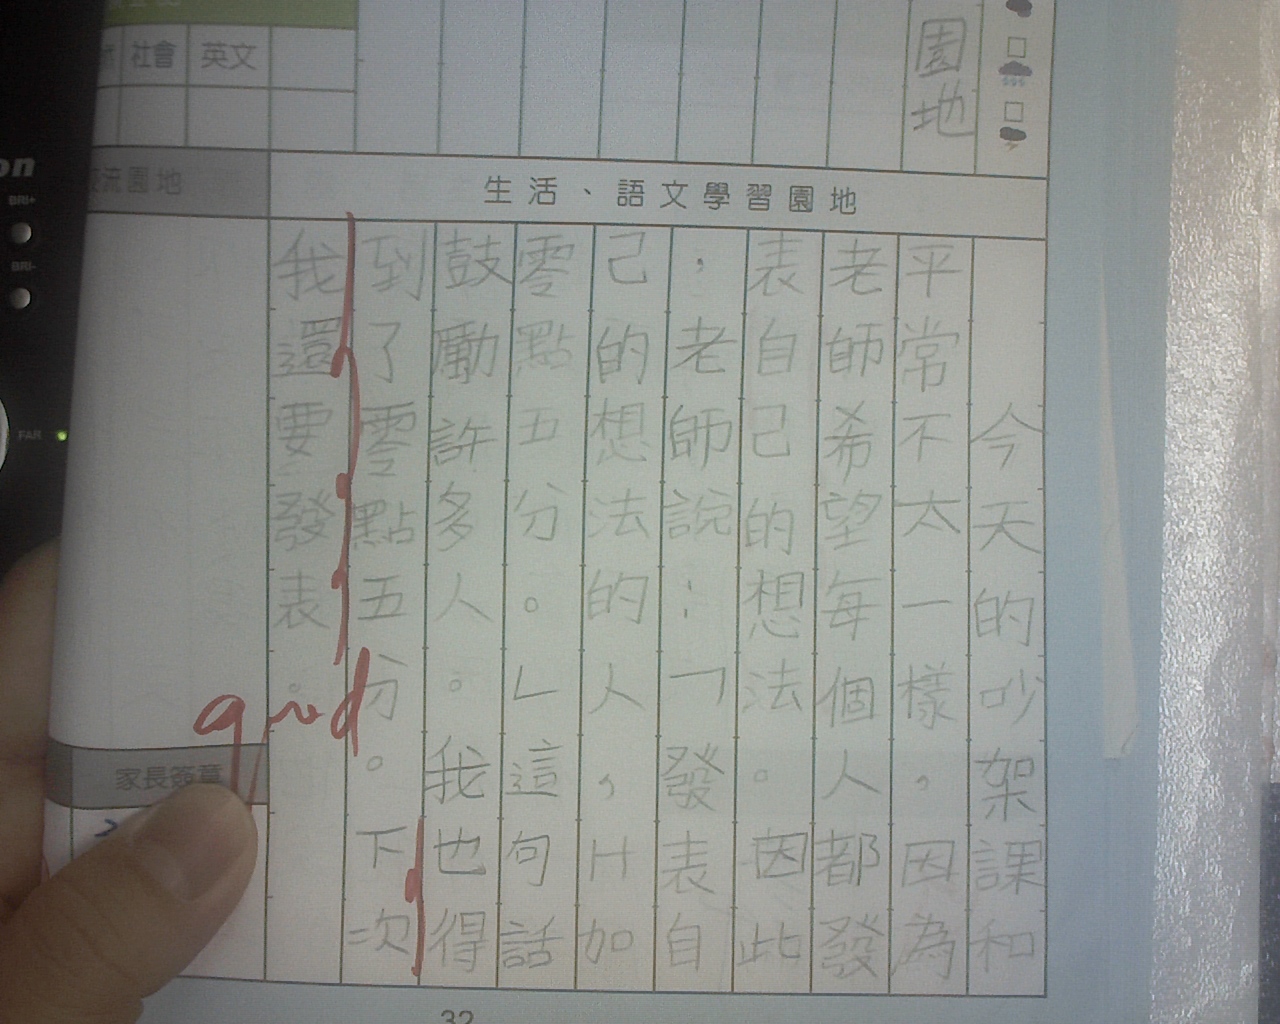 園地
社會
英文
流園地
生活、語文學習園地
今天的吵架課和
平常不太一樣，因為
老師希望每個人都發
表自己的想法。因此
，老師說：「發表自
己的想法的人，H加
零點五分。」這句話
鼓勵許多人。我也得
到了零點五分。下次
我還要發表。
good
家長簽章
32
on
BRI+
BRI-
FAR